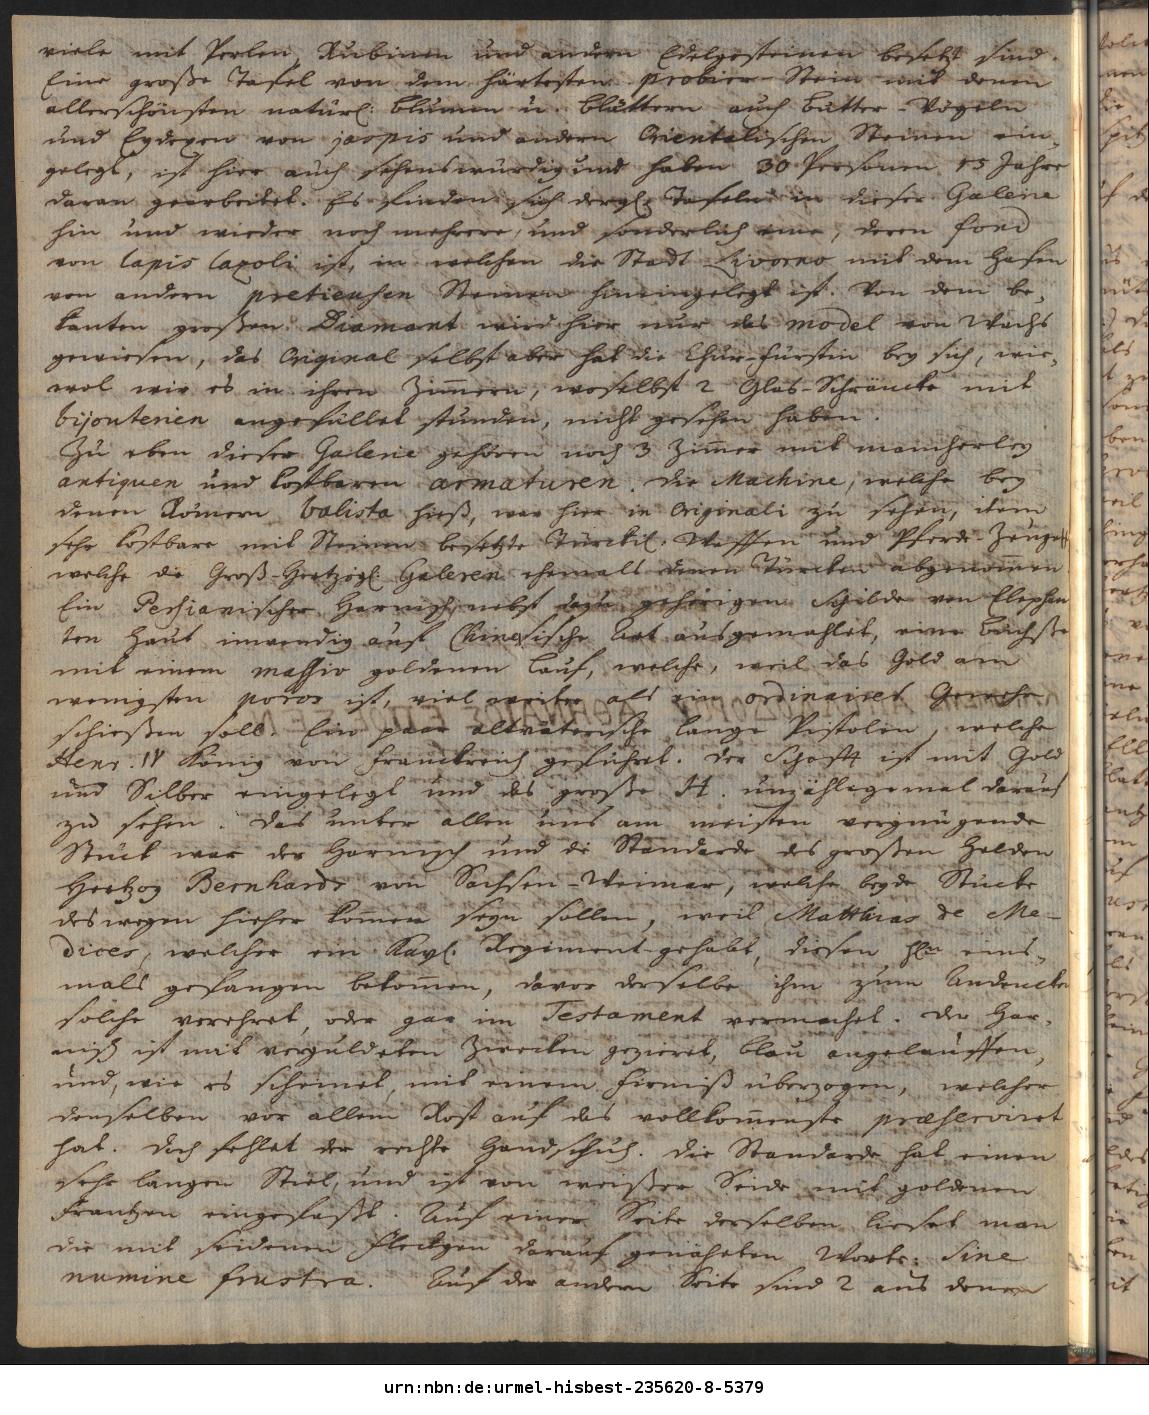 viele mit Perlen, Rubinen und andern Edelgesteinen besetzt sind.
Eine große Tafel von dem härtesten probier-Stein mit denen
allerschönsten natürl: blumen u. blättern auch butter-Vögeln
und Eydexen von jaspis und andern Orientalischen Steinen ein-
gelegt, ist hier auch sehenswürdig und haben 30 Personen 15 Jahre
daran gearbeitet. Es finden sich dergl: Tafeln in dieser Galerie
hin und wieder noch mehrere, und sonderlich eine, deren fond
von lapis lazoli ist, in welchen die Stadt Livorno mit dem Hafen
von andern pretieusen Steinen hineingelegt ist. Von dem be-
kanten großen Diamant wird hier nur das model von Wachs
gewiesen, das Original selbst aber hat die Chur-fürstin bey sich, wie-
wol wir es in ihren Zimmern, woselbst 2 Glas-Schräncke mit
bijouterien angefüllet stunden, nicht gesehen haben.
Zu eben dieser Galerie gehören noch 3 Zimmer mit mancherley
antiquen und kostbaren armaturen. Die Machine, welche bey
denen Römern balista hieß, war hier in Originali zu sehen, item
sehr kostbare mit Steinen besetzte Türckis. Waffen und Pferde-Zeuge
welche die Groß-Hertzogl. Galeren ehemals denen Türcken abgenommen
Ein Persianischer Harnisch nebst dazu gehörigen Schilde von Elephan
ten Haut inwendig auf Chinesische Art ausgemahlet, eine büchße
mit einem massiv goldenen Lauf, welche, weil das Gold am
wenigsten poros ist, viel weiter als ein ordinaires Gewehr
schießen soll. Ein paar altväterische lange Pistolen, welche
Henr. IV König von Franckreich geführet. Der Schafft ist mit Gold
und Silber eingelegt und das große H. unzähligemal darauf
zu sehen. Das unter allen uns am meisten vergnügende
Stück war der Harnisch und die Standarde des großen Helden
Hertzog Bernhards von Sachsen-Weimar, welche beyde Stücke
deswegen hieher kommen seyn sollen, weil Matthias de Me-
dices, welcher ein Kayl. Regiment gehabt, diesen eins-
mals gefangen bekommen, davor derselbe ihm zum Andencken
solche verehret, oder gar im Testament vermachet. Der Har-
nisch ist mit verguldeten Zwecken gezieret, blau angelauffen,
und, wie es scheinet, mit einem Firniß überzogen, welcher
denselben vor allem Rost auf das vollkommenste præserviret
hat. Doch fehlet der rechte Handschuh. Die Standarde hat einen
sehr langen Stiel, und ist von weißer Seide mit goldenen
Frantzen eingefaßt. Auf einer Seite derselben lieset man
die mit seidenen Fleckgen darauf genäheten Worte: Sine
numine frustra. Auf der andern Seite sind 2 aus denen
urn:nbn:de:urmel-hisbest-235620-8-5379